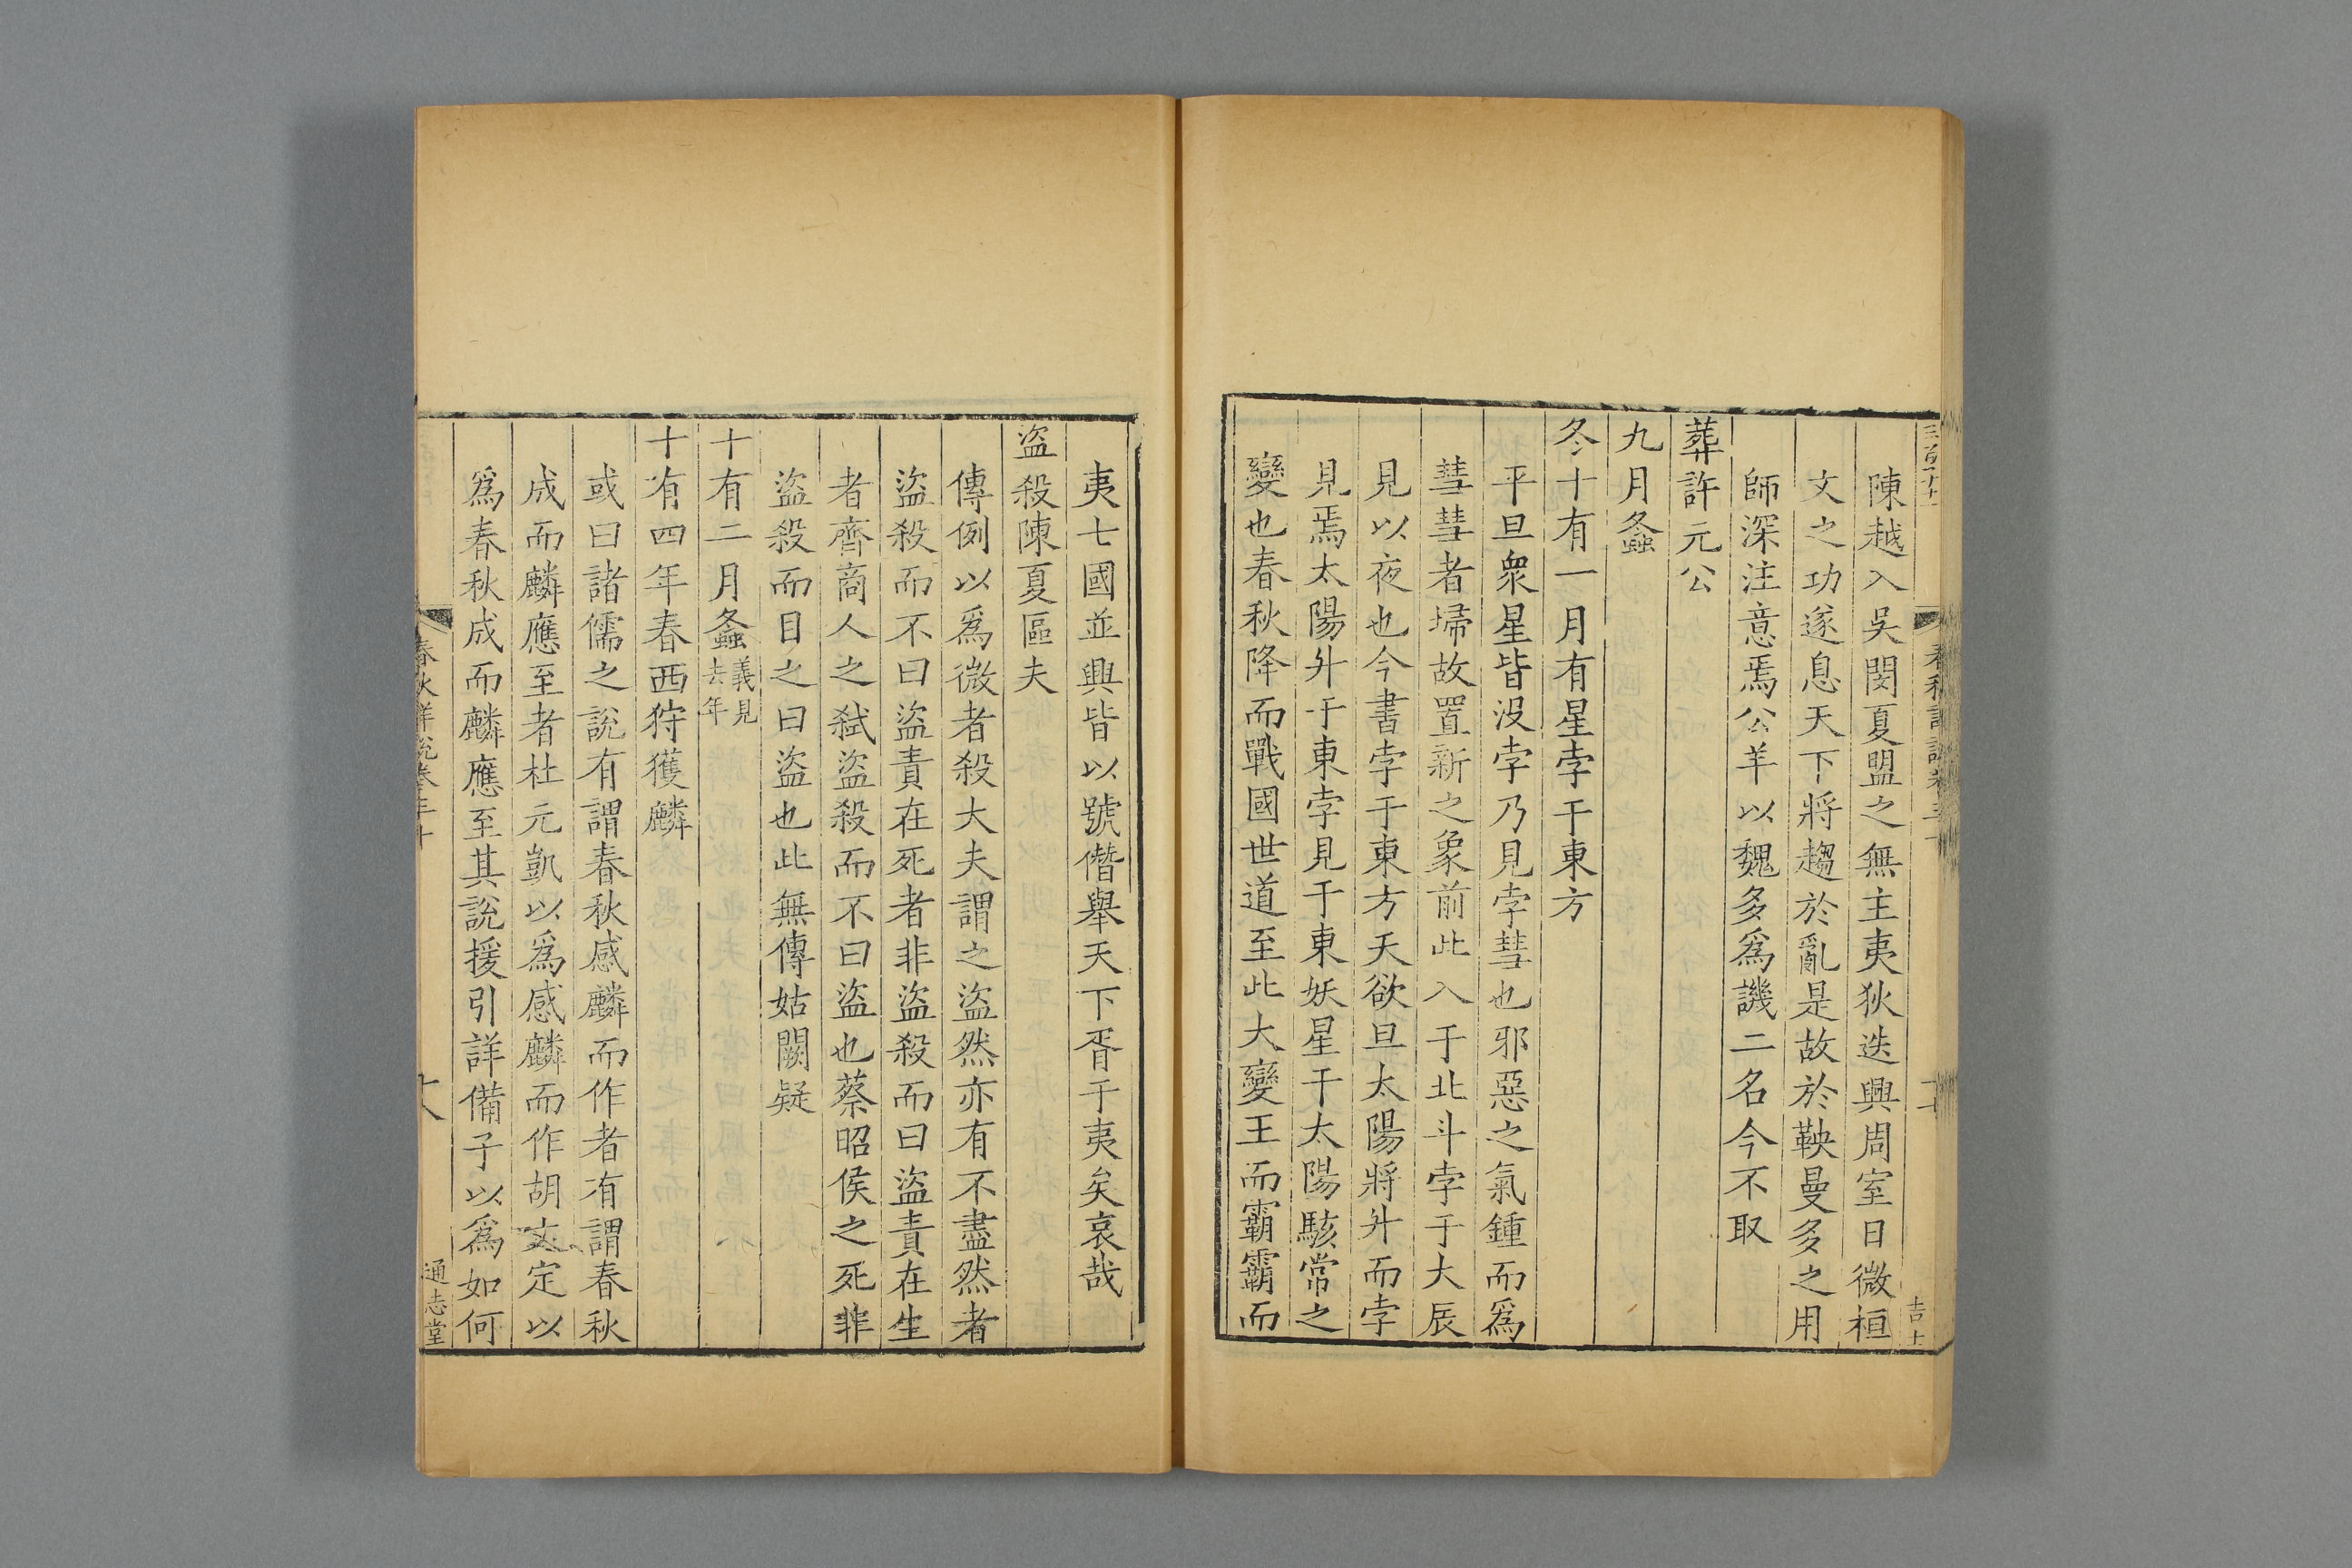 陳越入吳閔夏盟之無主夷狄迭興周室日微桓
文之功遂息天下將趨於亂是故於鞅曼多之用
師深注意焉公羊以魏多爲譏二名今不取
葬許元公
九月螽
冬十有一月有星孛于東方
平旦衆星皆沒孛乃見孛彗也邪惡之氣鍾而爲
彗彗者埽故置新之象前此入于北斗孛于大辰
見以夜也今書孛于東方天欲旦太陽將升而孛
見焉太陽升于東孛見于東妖星干太陽駭常之
變也春秋降而戰國世道至此大變王而霸霸而
夷七國並興皆以號僭舉天下胥于夷矣哀哉
盜殺陳夏區夫
傳例以爲微者殺大夫謂之盜然亦有不盡然者
盜殺而不曰盜責在死者非盜殺而曰盜責在生
者齊商人之弒盜殺而不曰盜也蔡昭侯之死非
盜殺而目之曰盜也此無傳姑闕疑
十有二月螽義見去年
十有四年春西狩獲麟
或曰諸儒之說有謂春秋感麟而作者有謂春秋
成而麟應至者杜元凱以爲感麟而作胡文定以
爲春秋成而麟應至其說援引詳備子以爲如何
春秋詳說卷三十
通志堂